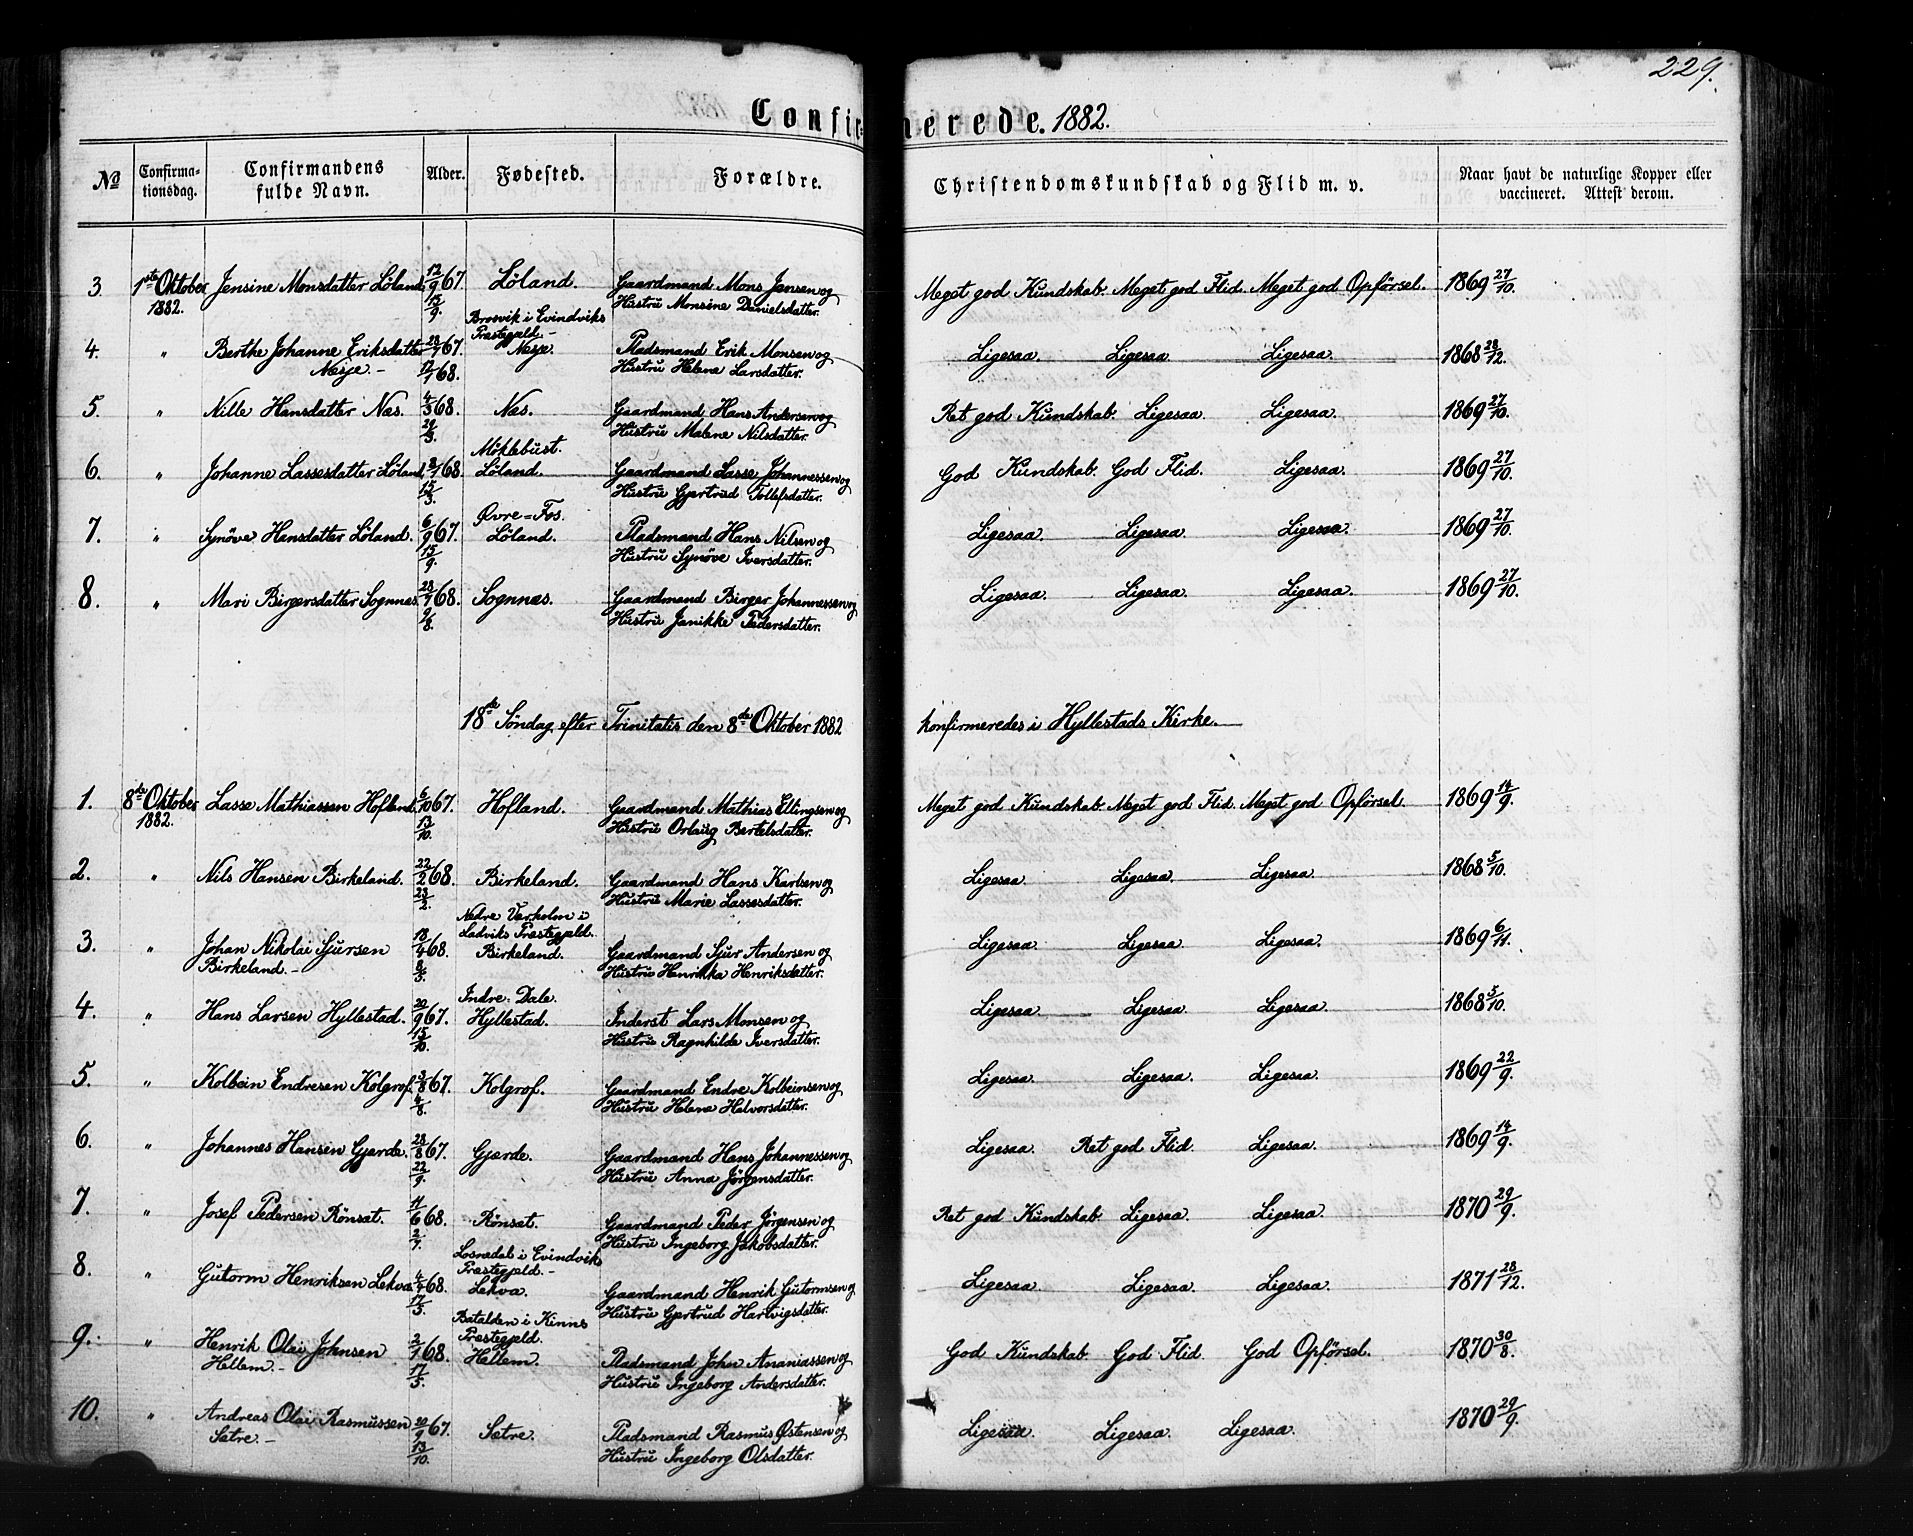 229.
Confirmerede. 1882.
№ Confirmationsdag. Confirmandens fulde Navn. Alder. Fødested. Forældre. Christendomskundskab og Flid m. v. Naar havt de naturlige Kopper eller vaccineret. Attest derom.
3 1ste Oktober Jensine Monsdatter Löland. 12/9 67. Löland. Gaardmand Mons Jensen og Meget god Kundskab. Meget god Flid. Meget god Opførsel. 1869 27/10.
1882. 15/9. Hustru Monsine Danielsdatter.
Brosvik i Evindviks
Præstegjeld.-
4. " Berthe Johanne Eriksdatter 28/7 67. Næsje. Pladsmand Erik Monsen og Ligesaa. Ligesaa Ligesaa. 1868 28/12.
Næsje.- 12/1 68. Hustru Helene Larsdatter.
5. " Nille Hansdatter Næs. 4/3 68. Næs. Gaardmand Hans Andersen og Ret god Kundskab. Ligesaa. Ligesaa. 1869 27/10.
29/3. Hustru Malene Nilsdatter.
Möklebust.
6. " Johanne Lassesdatter Löland 68. Löland. Gaardmand Lasse Johannessen og God Kundskab. God Flid. Ligesaa. 1869 27/10.
15/3. Hustru Gjertrud Tollefsdatter.
Øvre=Fos.
7. " Synöve Hansdatter Löland. 6/9 67. Löland. Pladsmand Hans Nilsen og Ligesaa. Ligesaa. Ligesaa. 1869 27/10.
15/9. Hustru Synöve Iversdatter.
8. " Mari Birgersdatter Sognnæs. 28/7 68. Sognnæs. Gaardmand Birger Johannessen og Ligesaa. Ligesaa. Ligesaa. 1869 27/10.
9/8. Hustru Janikke Pedersdatter.
18de Söndag efter Trinitatis den 8de Oktober 1882 konfirmeredes i Hyllestads Kirke.
1. 8de Oktober Lasse Mathiassen Hofland. 6/10 67. Hofland. Gaardmand Mathias Ellingsen og Meget god Kundskab. Meget god Flid. Meget god Opførsel. 1869 14/9.
1882. 13/10. Hustru Orlaug Bertelsdatter.
2. " Nils Hansen Birkeland. 22/2 68. Birkeland. Gaardmand Hans Karlsen og Ligesaa. Ligesaa. Ligesaa. 1868 5/10.
23/2. Hustru Marie Lassesdatter.
Nedre Værholm i
Ladviks Præstegjeld.
3. " Johan Nikolai Sjursen 18/4 68. Birkeland. Gaardmand Sjur Andersen og Ligesaa. Ligesaa. Ligesaa. 1869 6/11.
Birkeland.- 8/5. Hustru Henrikka Henriksdatter.
Indre Dale.
4. " Hans Larsen Hyllestad. 20/9 67. Hyllestad. Inderst Lars Monsen og Ligesaa. Ligesaa. Ligesaa. 1868 5/10.
15/10. Hustru Ragnhilde Iversdatter.
5. " Kolbein Endresen Kolgrof. 3/8 67. Kolgrof. Gaardmand Endre Kolbeinsen og Ligesaa. Ligesaa. Ligesaa. 1869 22/9.
4/8. Hustru Helena Halvorsdatter.
6. " Johannes Hansen Gjerde. 28/8 67. Gjerde. Gaardmand Hans Johannessen og Ligesaa. Ret god Flid. Ligesaa. 1869 14/9.
22/9. Hustru Anna Jörgensdatter.
7. " Josef Pedersen Rönset. 11/6 68. Rönset. Gaardmand Peder Jörgensen og Ret god Kundskab. Ligesaa. Ligesaa. 1870 29/9.
2/7. Hustru Ingeborg Jakobsdatter.
Losnedal i Evindviks
Præstegjeld.-
8. " Gutorm Henriksen Lekva 4/4 68. Lekva. Gaardmand Henrik Gutormsen og Ligesaa. Ligesaa. Ligesaa. 1871 28/12.
17/5. Hustru Gjertrud Hartvigsdatter.
Batalden i Kinns
Præstegjeld.
9. " Henrik Olai Johnsen 2/1 68. Hellem. Pladsmand John Ananiassen og God Kundskab. God Flid. God Opförsel. 1870 30/8.
Hellem.- 17/5. Hustru Ingeborg Andersdatter.
10. " Andreas Olai Rasmussen 20/9 67. Sætre. Pladsmand Rasmus Östensen og Ligesaa. Ligesaa. Ligesaa. 1870 29/9.
Sætre.- 13/10. Hustru Ingeborg Olsdatter.